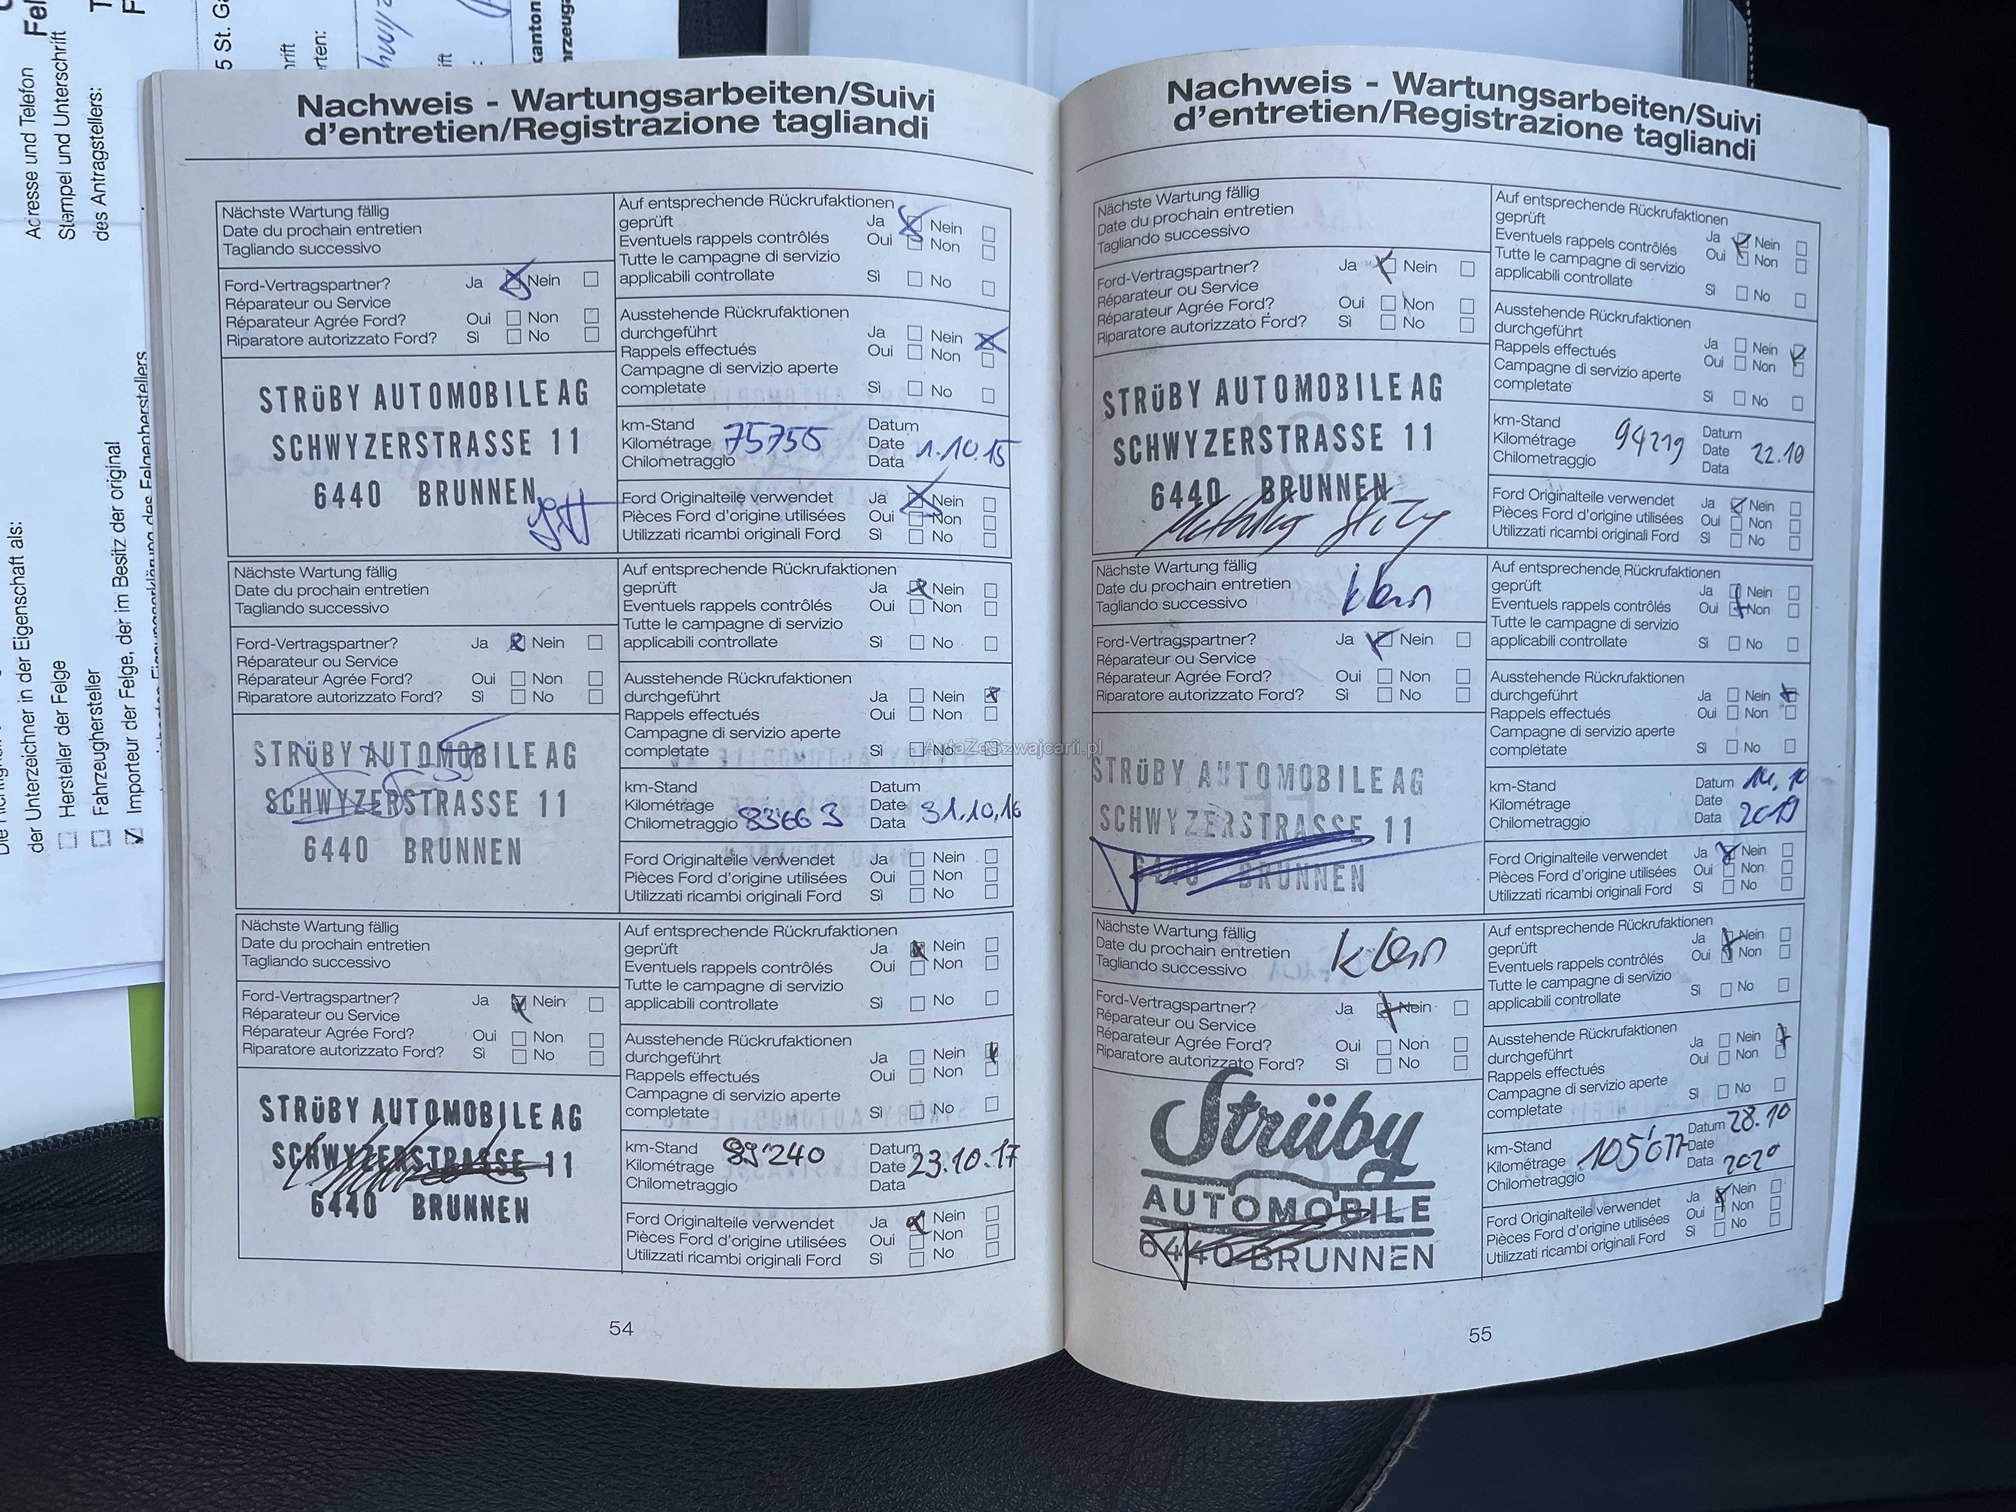 Adresse und Telefon
Stempel und Unterschrift
des Antragstellers:
der Unterzeichner in der Eigenschaft als:
Hersteller der Felge
Fahrzeughersteller
Importeur der Felge, der im Besitz der original
Nachweis - Wartungsarbeiten/Suivi
d'entretien/Registrazione tagliandi
Nächste Wartung fällig
Date du prochain entretien
Tagliando successivo
Ford-Vertragspartner? Ja Nein
Réparateur ou Service
Réparateur Agrée Ford? Oui Non
Riparatore autorizzato Ford? Sì No
STRüBY AUTOMOBILE AG
SCHWYZERSTRASSE 11
6440 BRUNNEN
Auf entsprechende Rückrufaktionen
geprüft Ja Nein
Eventuels rappels contrôlés Oui Non
Tutte le campagne di servizio
applicabili controllate Sì No
Ausstehende Rückrufaktionen
durchgeführt Ja Nein
Rappels effectués Oui Non
Campagne di servizio aperte
completate Sì No
km-Stand Datum
Kilométrage 75755 Date 1.10.15
Chilometraggio Data
Ford Originalteile verwendet Ja Nein
Pièces Ford d'origine utilisées Oui Non
Utilizzati ricambi originali Ford Sì No
Nächste Wartung fällig
Date du prochain entretien
Tagliando successivo
Ford-Vertragspartner? Ja Nein
Réparateur ou Service
Réparateur Agrée Ford? Oui Non
Riparatore autorizzato Ford? Sì No
STRüBY AUTOMOBILE AG
SCHWYZERSTRASSE 11
6440 BRUNNEN
Auf entsprechende Rückrufaktionen
geprüft Ja Nein
Eventuels rappels contrôlés Oui Non
Tutte le campagne di servizio
applicabili controllate Sì No
Ausstehende Rückrufaktionen
durchgeführt Ja Nein
Rappels effectués Oui Non
Campagne di servizio aperte
completate Sì No
km-Stand Datum
Kilométrage Date 31.10.16
Chilometraggio 83663 Data
Ford Originalteile verwendet Ja Nein
Pièces Ford d'origine utilisées Oui Non
Utilizzati ricambi originali Ford Sì No
Nächste Wartung fällig
Date du prochain entretien
Tagliando successivo
Ford-Vertragspartner? Ja Nein
Réparateur ou Service
Réparateur Agrée Ford? Oui Non
Riparatore autorizzato Ford? Sì No
STRüBY AUTOMOBILE AG
SCHWYZERSTRASSE 11
6440 BRUNNEN
Auf entsprechende Rückrufaktionen
geprüft Ja Nein
Eventuels rappels contrôlés Oui Non
Tutte le campagne di servizio
applicabili controllate Sì No
Ausstehende Rückrufaktionen
durchgeführt Ja Nein
Rappels effectués Oui Non
Campagne di servizio aperte
completate Sì No
km-Stand 89'240 Datum
Kilométrage Date 23.10.17
Chilometraggio Data
Ford Originalteile verwendet Ja Nein
Pièces Ford d'origine utilisées Oui Non
Utilizzati ricambi originali Ford Sì No
54
Nachweis - Wartungsarbeiten/Suivi
d'entretien/Registrazione tagliandi
Nächste Wartung fällig
Date du prochain entretien
Tagliando successivo
Ford-Vertragspartner? Ja Nein
Réparateur ou Service
Réparateur Agrée Ford? Oui Non
Riparatore autorizzato Ford? Sì No
STRüBY AUTOMOBILE AG
SCHWYZERSTRASSE 11
6440 BRUNNEN
Auf entsprechende Rückrufaktionen
geprüft Ja Nein
Eventuels rappels contrôlés Oui Non
Tutte le campagne di servizio
applicabili controllate Sì No
Ausstehende Rückrufaktionen
durchgeführt Ja Nein
Rappels effectués Oui Non
Campagne di servizio aperte
completate Sì No
km-Stand Datum
Kilométrage 94219 Date 22.10
Chilometraggio Data
Ford Originalteile verwendet Ja Nein
Pièces Ford d'origine utilisées Oui Non
Utilizzati ricambi originali Ford Sì No
Nächste Wartung fällig
Date du prochain entretien klein
Tagliando successivo
Ford-Vertragspartner? Ja Nein
Réparateur ou Service
Réparateur Agrée Ford? Oui Non
Riparatore autorizzato Ford? Sì No
STRüBY AUTOMOBILE AG
SCHWYZERSTRASSE 11
6440 BRUNNEN
Auf entsprechende Rückrufaktionen
geprüft Ja Nein
Eventuels rappels contrôlés Oui Non
Tutte le campagne di servizio
applicabili controllate Sì No
Ausstehende Rückrufaktionen
durchgeführt Ja Nein
Rappels effectués Oui Non
Campagne di servizio aperte
completate Sì No
km-Stand Datum
Kilométrage Date
Chilometraggio Data 2019
Ford Originalteile verwendet Ja Nein
Pièces Ford d'origine utilisées Oui Non
Utilizzati ricambi originali Ford Sì No
Nächste Wartung fällig
Date du prochain entretien klein
Tagliando successivo
Ford-Vertragspartner? Ja Nein
Réparateur ou Service
Réparateur Agrée Ford? Oui Non
Riparatore autorizzato Ford? Sì No
Strüby
AUTOMOBILE
6440 BRUNNEN
Auf entsprechende Rückrufaktionen
geprüft Ja Nein
Eventuels rappels contrôlés Oui Non
Tutte le campagne di servizio
applicabili controllate Sì No
Ausstehende Rückrufaktionen
durchgeführt Ja Nein
Rappels effectués Oui Non
Campagne di servizio aperte
completate Sì No
km-Stand Datum 28.10
Kilométrage 105'677 Date
Chilometraggio Data 2020
Ford Originalteile verwendet Ja Nein
Pièces Ford d'origine utilisées Oui Non
Utilizzati ricambi originali Ford Sì No
55
AutaZeSzwajcarii.pl